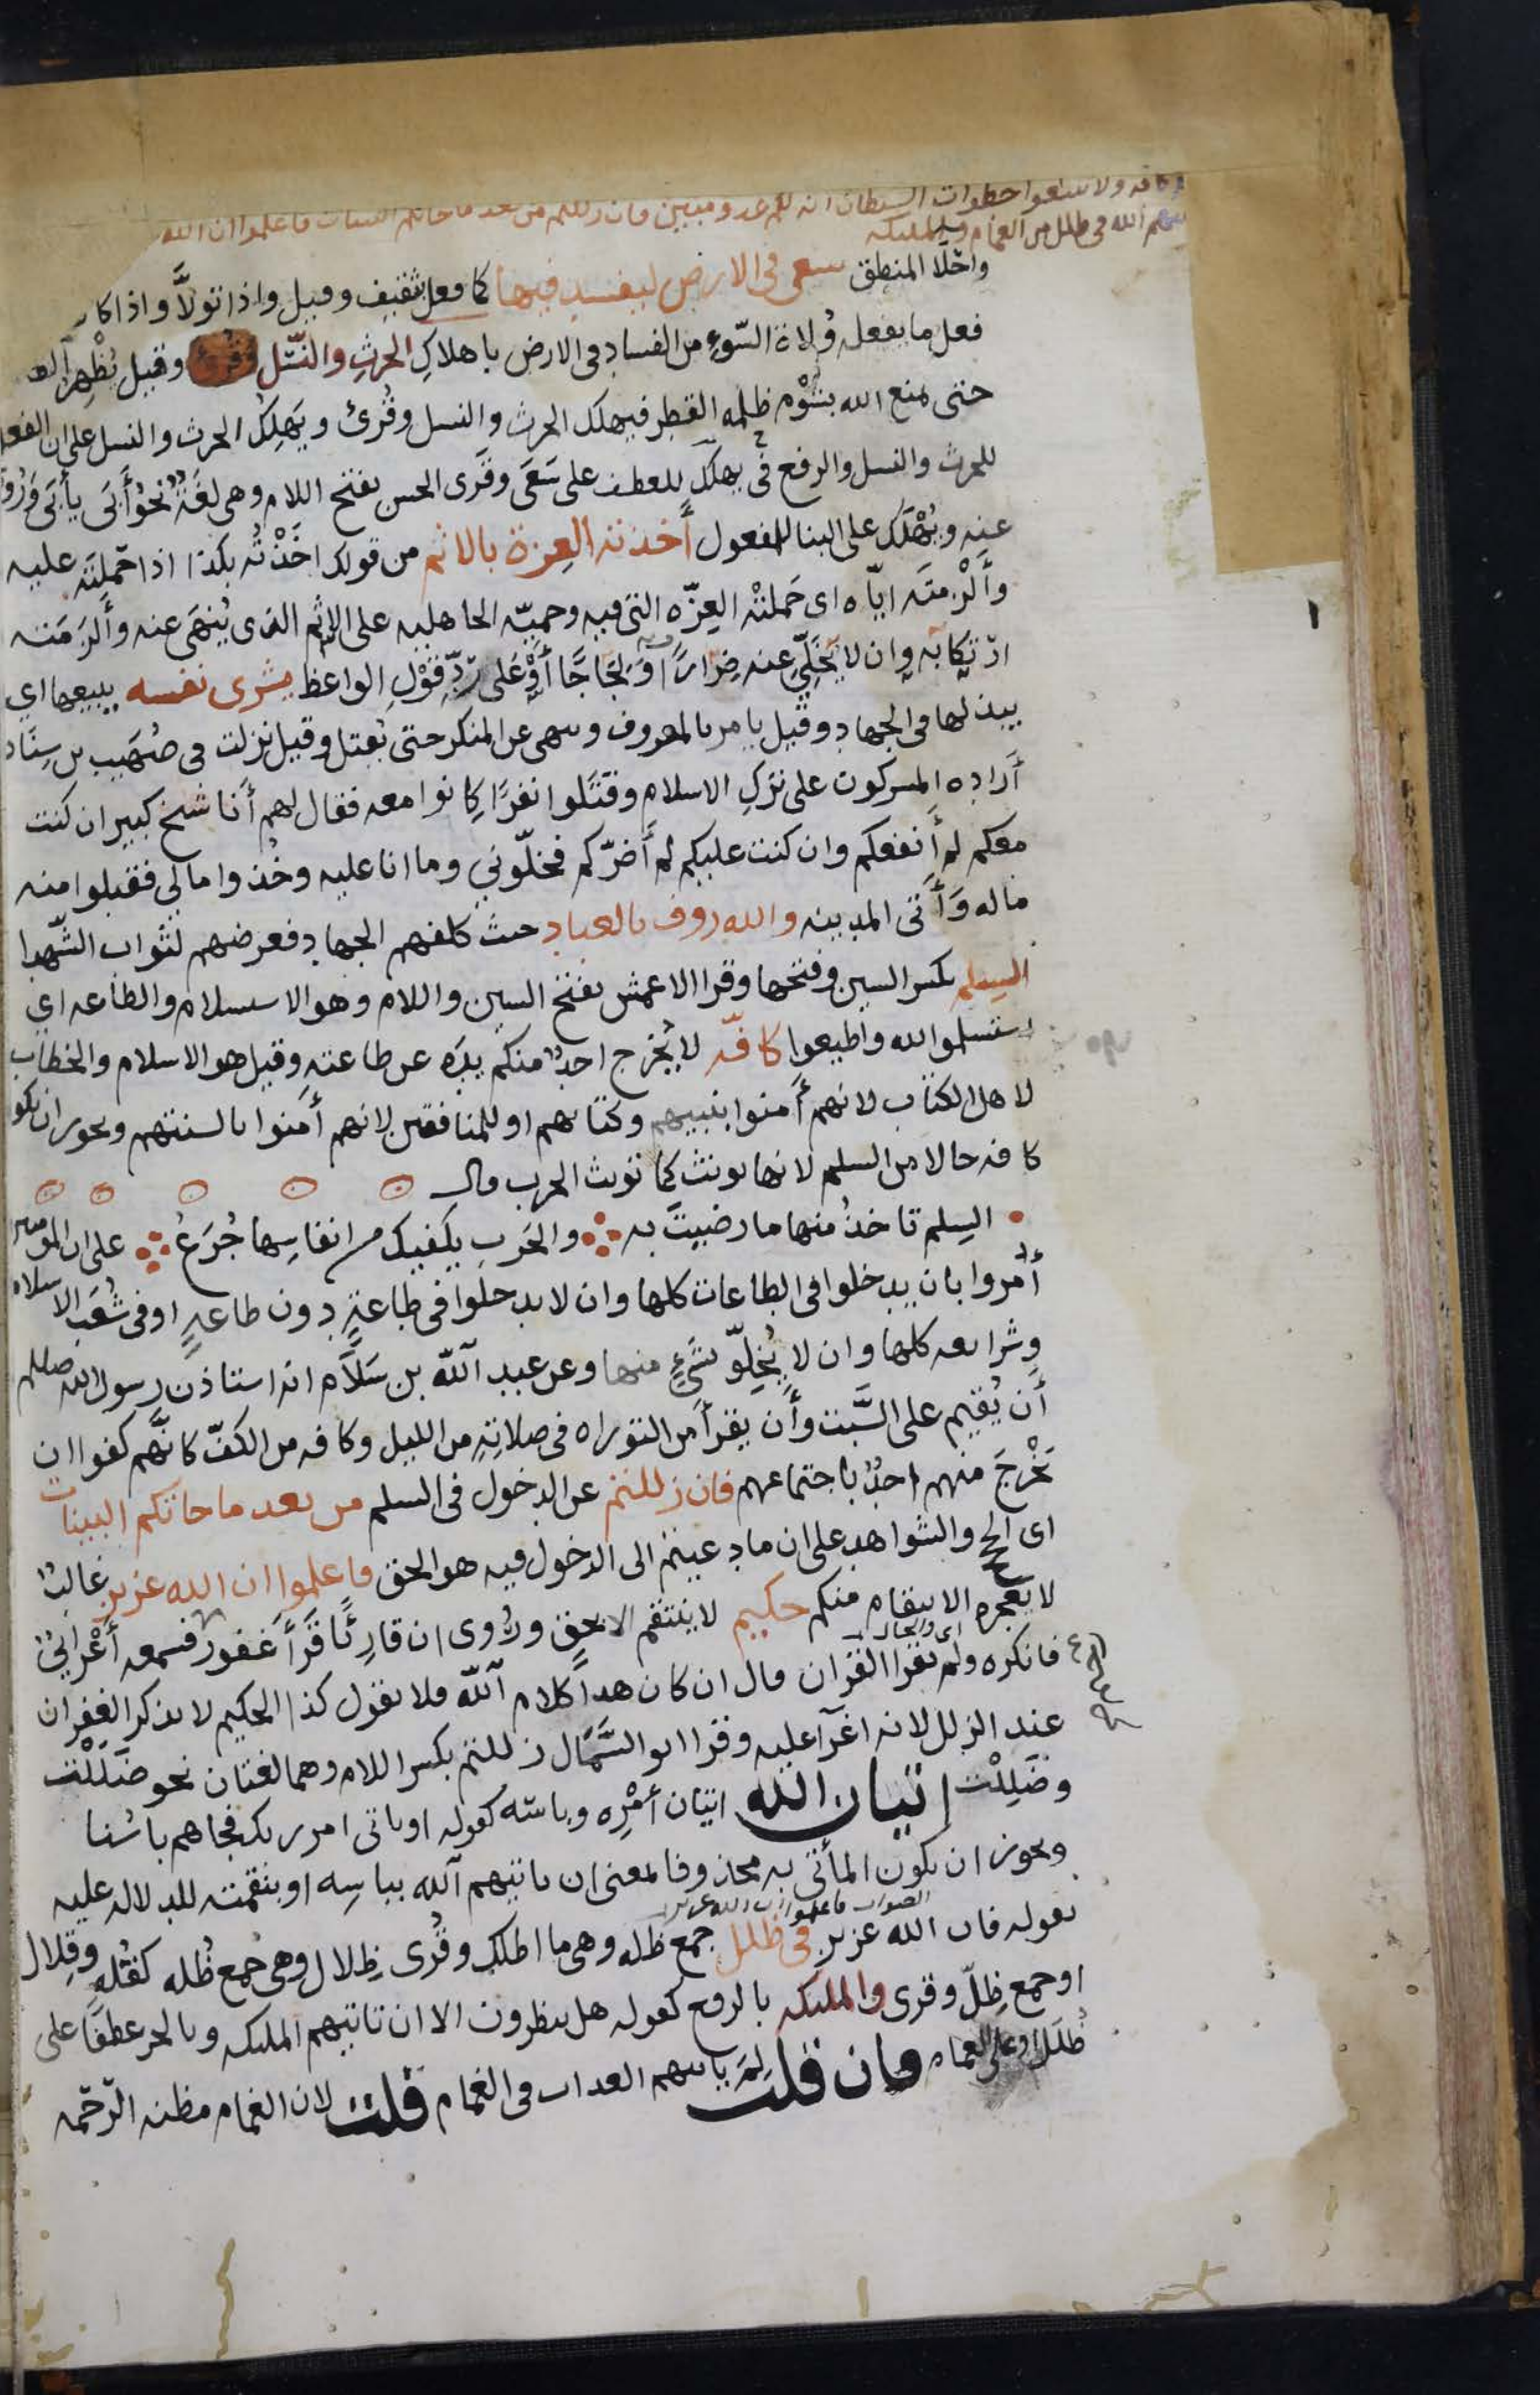 كافه ولا تتبعوا خطوات الشيطان انه لكم عدو مبين فان زللتم من بعد ما جاتكم البينات فاعلموا ان الله
الله في ظلل من الغمام والمليكه
واحلا المنطق سعى في الارض ليفسد فيها كما فعل بثقيف وقيل واذا تولا واذا كان
فعل ما يفعله وُلاة السّوءِ من الفساد في الارض باهلاكِ الحرثِ والنّسل وقيل يُظْهِر
حتى يمنع الله بشؤم ظلمه القطر فيهلك الحرث والنسل وقُرئ ويَهلِكُ الحرث والنسل على ان الفعل
للحرث والنسل والرفع في يهلك للعطف على سَعَى وقرى الحسن بفتح اللام وهي لغَةٌ نحوُ أَبَى يأبَى وَرُوي
عنه ويُهْلَك على البنا للمفعول أخذته العِزة بالاثم من قولك اخَذْتُه بكذا اذا حَملتَه عليه
وأَلْزمتَه ايّاه اى حَملتْه العِزّه التى فيه وحميّه الجاهليه على الاثم الذى يُنهَى عنه وأَلزَمَته
ارتكابَه وان لا يُخَلِّيَ عنه ضِرَارًا وَلجَاجًا أوْ عَلى رَدِّ قوْلِ الواعظ يشرى نفسه يبيعها اي
يبذلها في الجهاد وقيل يامر بالمعروف وينهى عن المنكر حتى يُقتل وقيل نزلت في صُهَيب بن سِنَان
أرَاده المشركون على تركِ الاسلام وقتَلوا نفرًا كانوا معه فقال لهم أنا شيخ كبير ان كنت
معكم لم أنفعكم وان كنت عليكم لم أضرّكم فخلّوني وما انا عليه وخُذوا مالى فقبلوا منه
ماله وَأَتى المدينه والله روف بالعباد حيث كلفهم الجهاد فعرضهم لثواب الشّهدا
السِلم بكسر السين وفتحها وقرا الاعمش بفتح السين واللام وهو الاستسلام والطاعه اي
استسلموا لله واطيعوا كافّه لا يُخرج احدٌ منكم يدَه عن طاعتهِ وقيل هو الاسلام والخطاب
لاهل الكتاب لانهم أمنوا بنبيهم وكتابهم او للمنافقين لانهم أمنوا بالسنتهم ويجوز ان يكون
كافه حالا من السلم لانها تونث كما تونث الحرب قال
السِلم تاخذُ منها ما رضيتَ به والحَرب يكفيك من انفاسِها جُرَعُ على ان المومنين
أُمروا بان يدخلوا في الطاعات كلها وان لا يدخلوا فى طاعةٍ دون طاعهٍ او فى شُعَب الاسلام
وشرايعه كلها وان لا يُخِلّو بشَيءٍ منها وعن عبد الله بن سَلاَم انه استاذن رسول الله صلعم
أن يُقيم على السَّبت وأَن يقرأ من التوراه فى صلاتِهِ من الليل وكافه من الكفّ كانهُم كفوا ان
يَخْرجَ منهم احدٌ باجتماعهم فان زللتم عن الدخول فى السلم من بعد ما جاتكم البينات
اى الحجج والشواهد على ان ما دعيتم الى الدخول فيه هو الحق فاعلموا ان الله عزيز غالبٌ
لا يعجزه الانتقام منكم حكيم لا ينتقم الا بحقٍ ورُوى ان قارِئًا قَرَأ غفور فسمعه أعْرابيٌ
فانكره ولم يقرا القران وقال ان كان هذا كلام الله فلا يقول كذا الحكيم لا يذكر الغفران
عند الزلل لانه اغرآ عليه وقرا ابو السَّمَال زللتم بكسر اللام وهما لغتان نحو ضَلَلْت
وضَلِلْت إتيان الله اتيان أمْرِه وباسه كقوله او ياتى امر ربك فجاهم باسُنا
ويجوز ان يكون المأتى به محذوفا لمعنى ان ياتيهم الله بباسِه او بنقمته للدلاله عليه
الصواب فاعلموا ان الله عزيز
بقوله فان الله عزيز في ظلل جمع ظله وهى ما اظلك وقُرى ظِلال وهى جُمع ظُله كقلهٍ وقِلال
او جمع ظِلّ وقرى والمليكه بالرفع كقوله هل ينظرون الا ان تاتيهم المليكه وبالجر عطفًا على
ظُلَل او على الغمام فان قلت لِمَ ياتيهم العذاب في الغمام قلت لان الغمام مظنه الرّحَمه